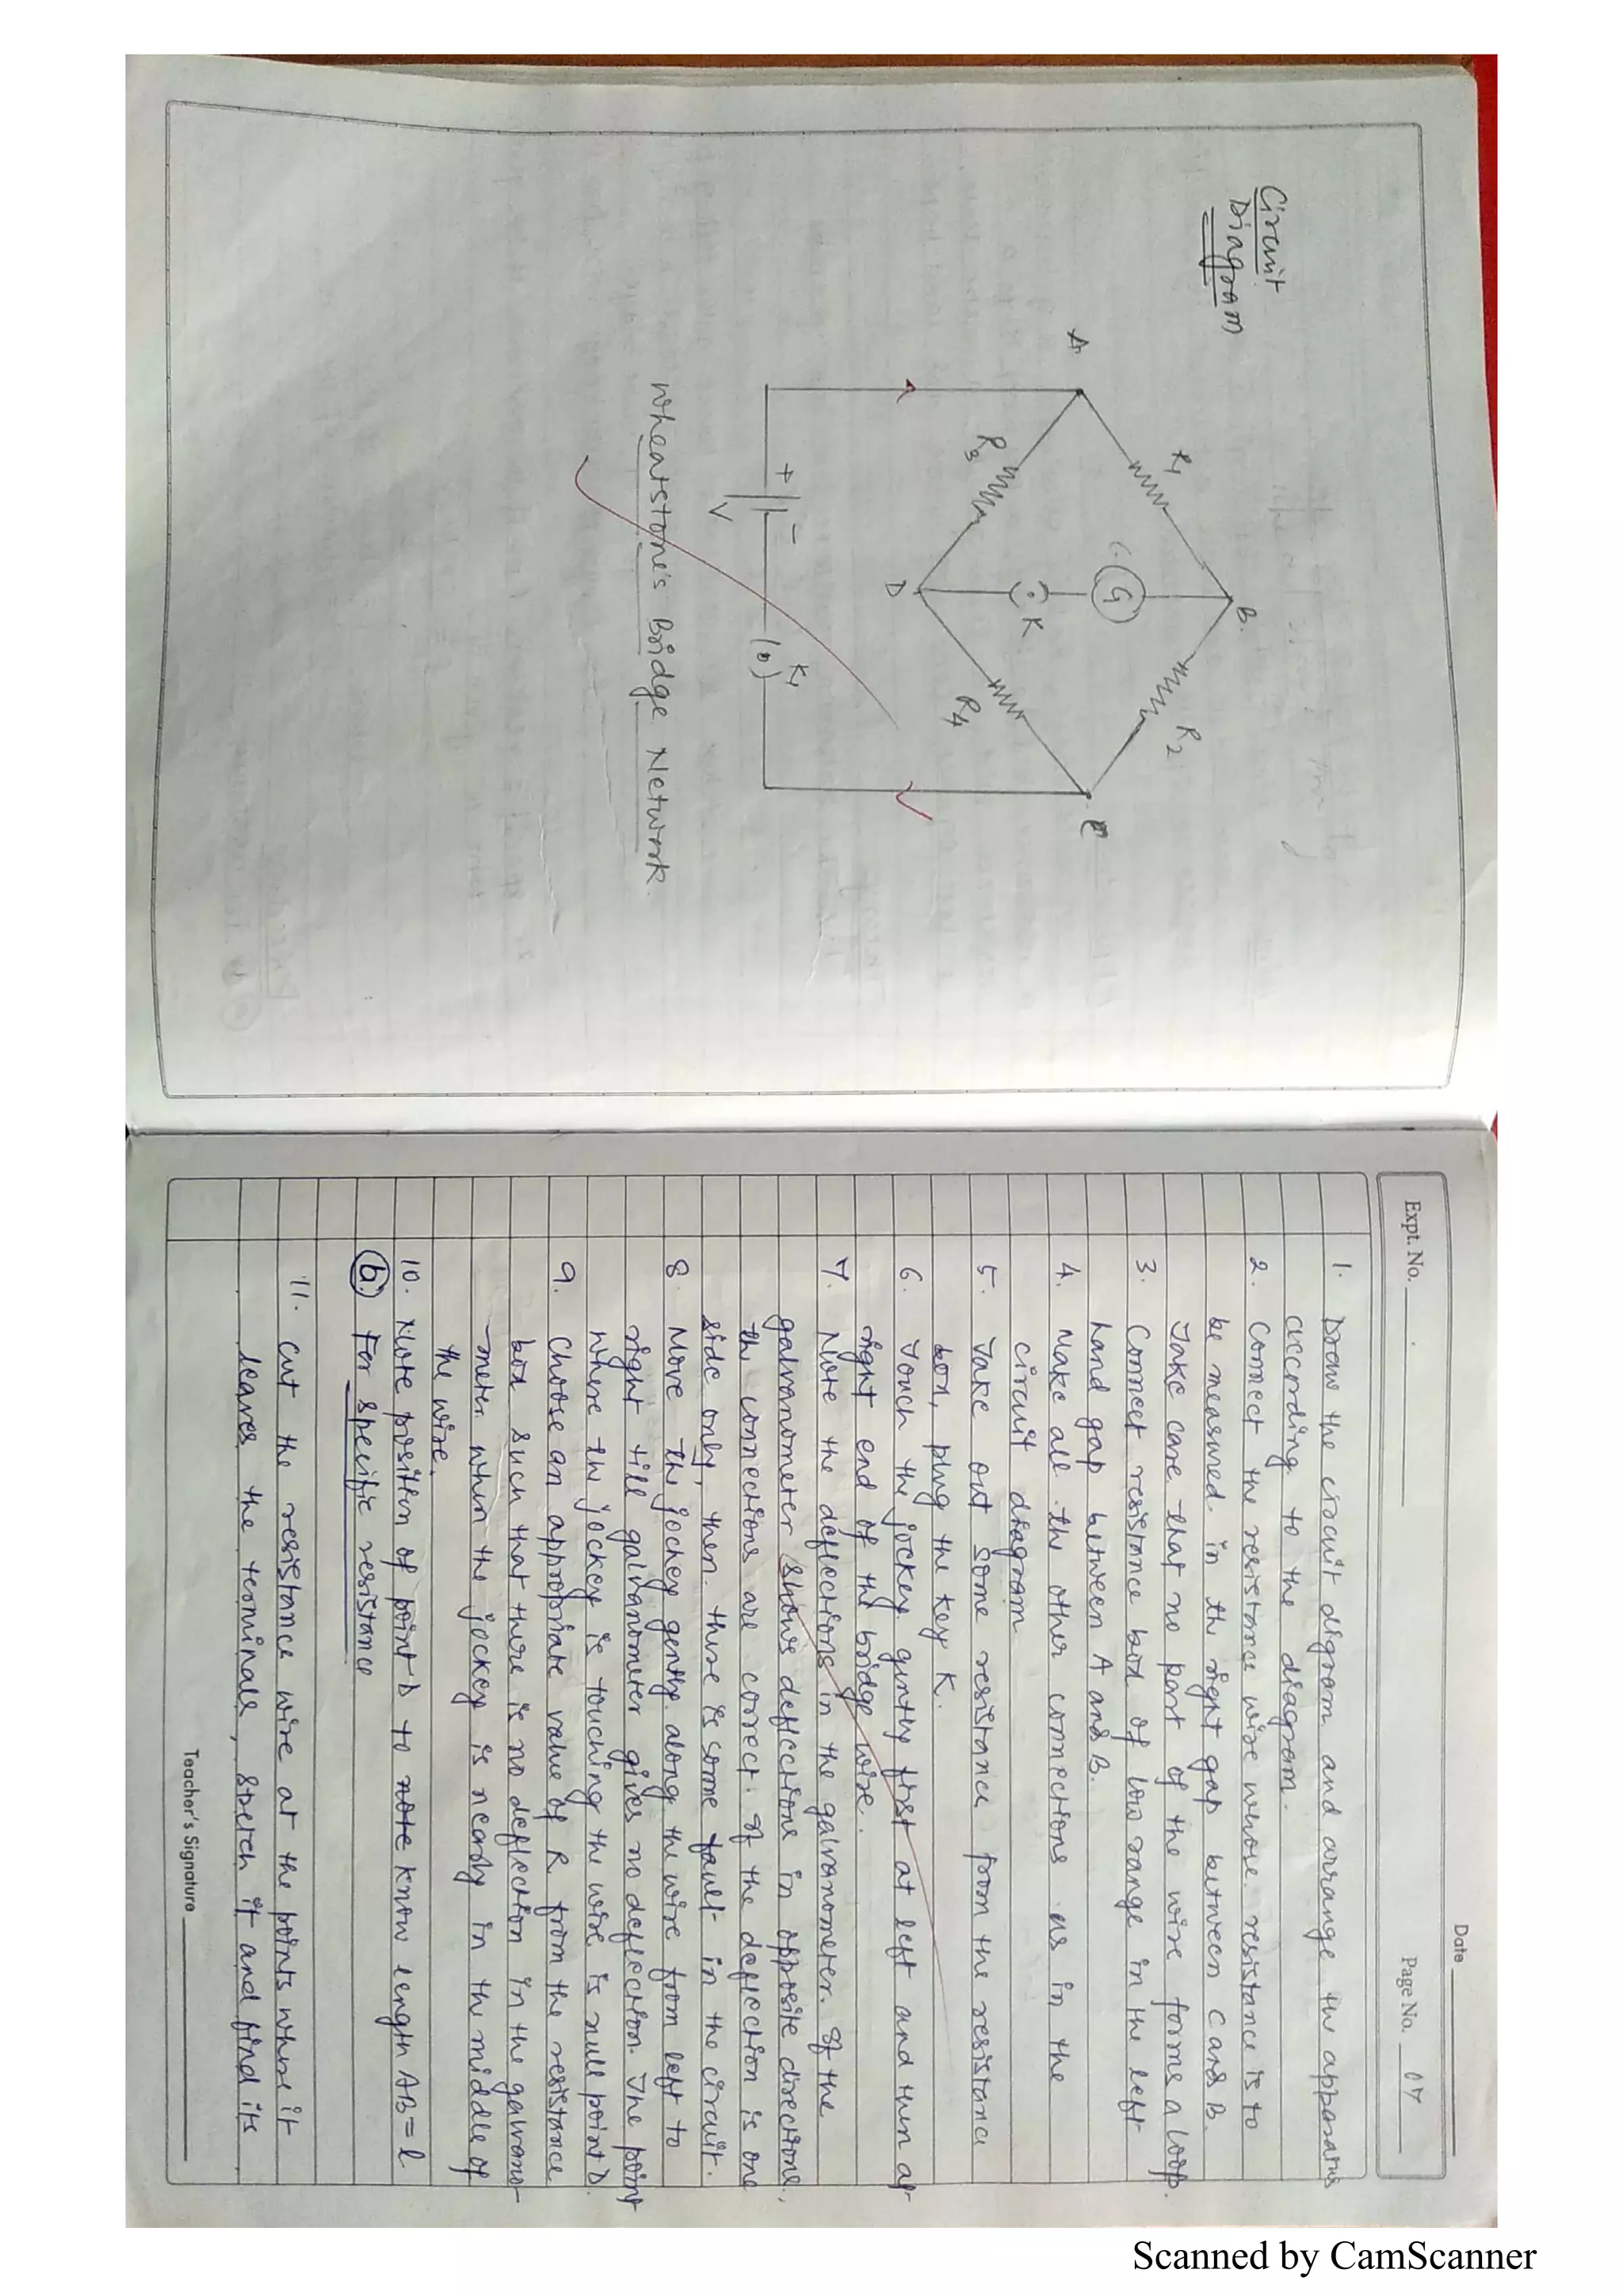 Circuit
Diagram
A
R1
B.
R2
C
G
K
R3
D
R4
+
-
V
K1
Wheatstone's Bridge Network
Date
Expt. No.
Page No. 07
1. Draw the circuit digram and arrange the apparatus
according to the diagram.
2. Connect the resistance wire whose resistance is to
be measured in the right gap between C and B.
Take care that no part of the wire forms a loop.
3. Connect resistance box of low range in the left
hand gap between A and B.
4. Make all the other connections as in the
circuit diagram
5. Take out some resistance from the resistance
box, plug the key K.
6. Touch the jockey gently first at left and then at
right end of the bridge wire.
7. Note the deflections in the galvanometer. If the
galvanometer shows deflections in opposite directions,
the connections are correct. If the deflection is one
side only, then there is some fault in the circuit.
8. Move the jockey gently along the wire from left to
right till galvanometer gives no deflection. The point
where the jockey is touching the wire is null point D.
9. Choose an appropriate value of R from the resistance
box such that there is no deflection in the galvano-
meter when the jockey is nearly in the middle of
the wire.
10. Note position of point D to note know length AB = l
(b.) For specific resistance
11. Cut the resistance wire at the points where it
leaves the terminals, stretch it and find its
Teacher's Signature
Scanned by CamScanner